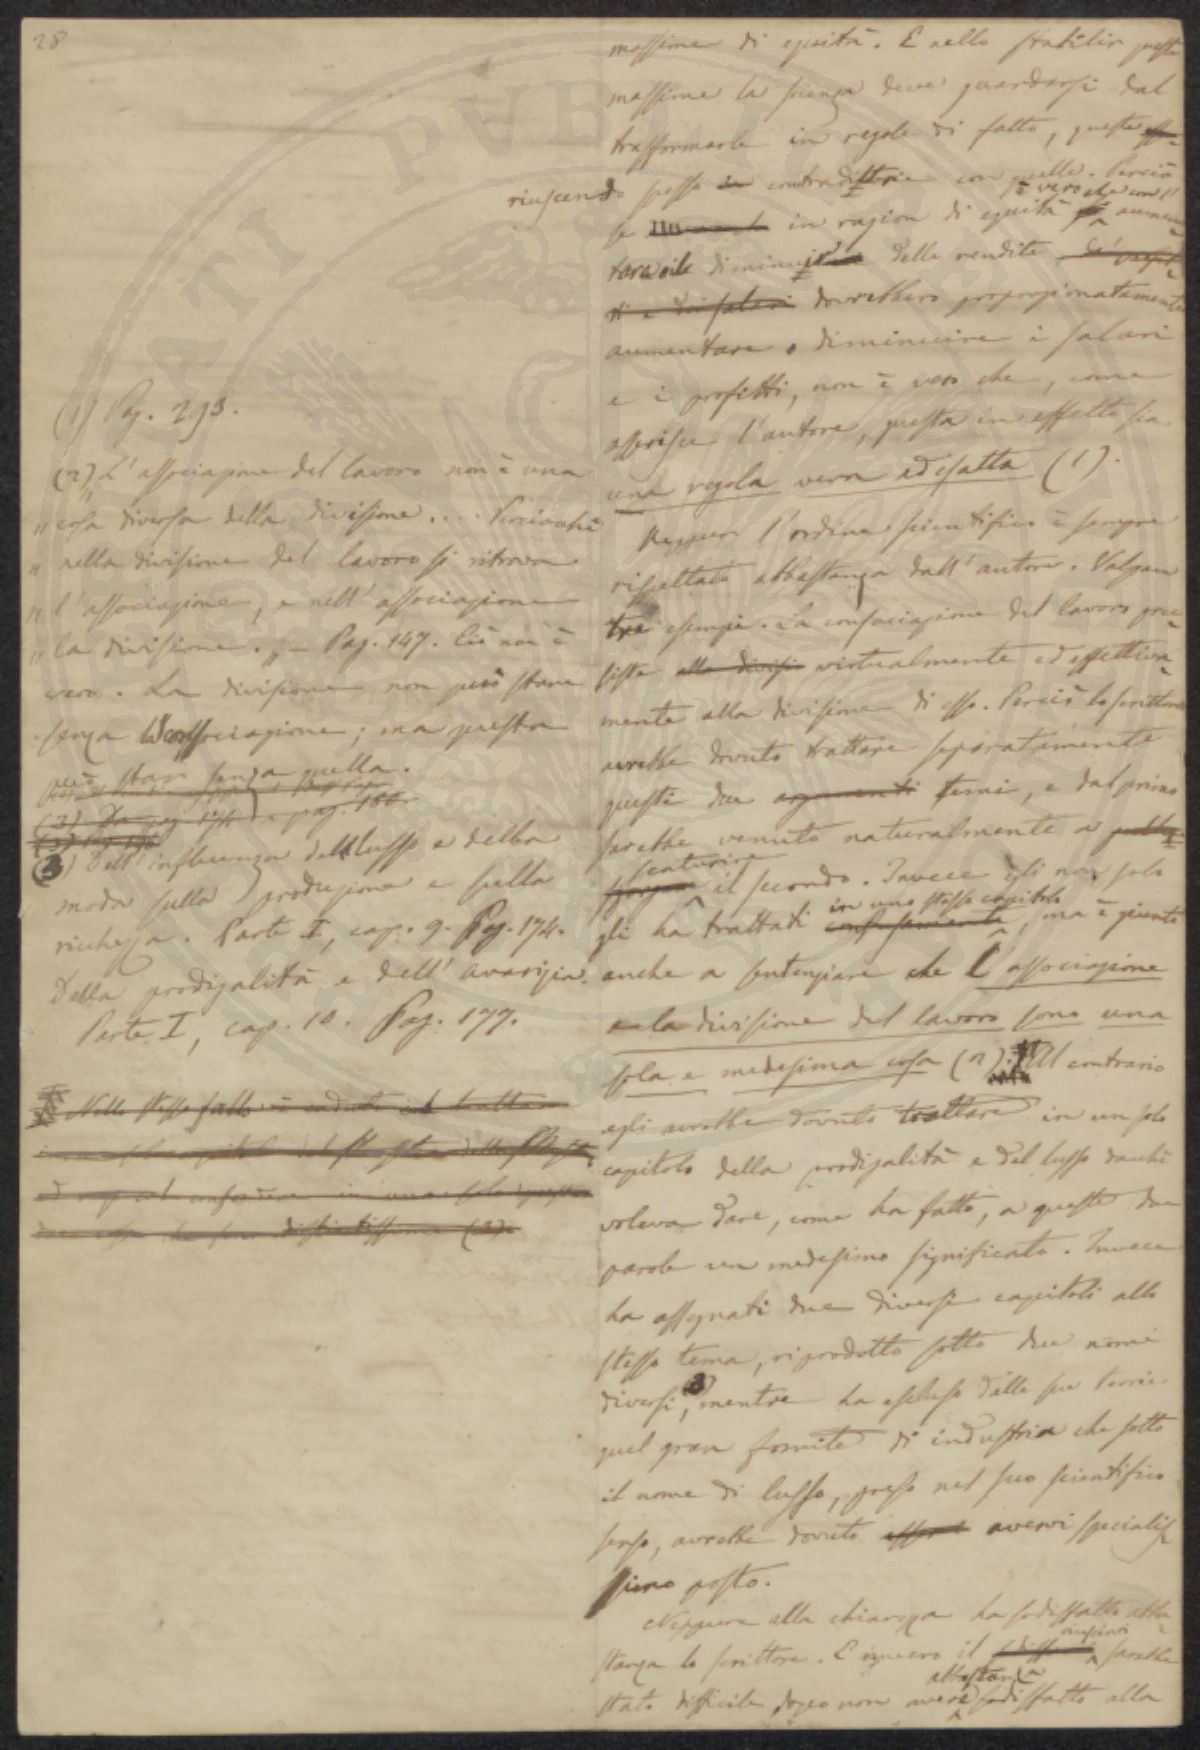 28
massime di equità. E nello stabilir queste
massime la scienza deve guardarsi dal
trasformarle in regole di fatto, queste
riuscendo spesso contradittorie con quelle. Perciò
se in ragion di equità è vero che con l'aumen
tare o il diminuire delle rendite
dovrebbero proporzionatamente
aumentare o diminuire i salari
e i profitti, non è vero che, come
asserisce l'autore, questa in effetto sia
una regola vera ed esatta (1).
Neppur l'ordine scientifico è sempre
rispettato abbastanza dall'autore. Valgan
tre esempi. La consociazione del lavoro pree
siste alla divisio virtualmente ed effettiva
mente alla divisione di esso. Perciò lo scrittore
avrebbe dovuto trattare separatamente
questi due argomenti temi, e dal primo
sarebbe venuto naturalmente a
scaturire il secondo. Invece egli non solo
gli ha trattati confusamente in uno stesso capitolo, ma è giunto
anche a sentenziare che l'associazione
e la divisione del lavoro sono una
sola e medesima cosa (2). Al contrario
egli avrebbe dovuto trattare in un solo
capitolo della prodigalità e del lusso dacchè
voleva dare, come ha fatto, a queste due
parole un medesimo significato. Invece
ha assegnati due diversi capitoli allo
stesso tema, riprodotto sotto due nomi
diversi (3), mentre ha escluso dalle sue teorie
quel gran fomite di industria che sotto
il nome di lusso, preso nel suo scientifico
senso, avrebbe dovuto avervi specialis
simo posto.
Neppure alla chiarezza ha sodisfatto abba
stanza lo scrittore. E invero il riuscirvi sarebbe
stato difficile, dopo non avere abbastanza sodisfatto alla
(1) Pag. 293.
(2) "L'associazione del lavoro non è una
" cosa diversa della divisione.... Perciocchè
" nella divisione del lavoro si ritrova
" l'associazione, e nell'associazione
" la divisione. " – Pag. 147. Ciò non è
vero. La divisione non può stare
senza l'associazione; ma questa
può star senza quella.
(3) Dell'influenza del lusso e della
moda sulla produzione e sulla
ricchezza. Parte I, cap. 9. Pag. 174.
Della prodigalità e dell'avarizia.
Parte I, cap. 10. Pag. 177.
Nello stesso fallo è caduto
distintissime (3).